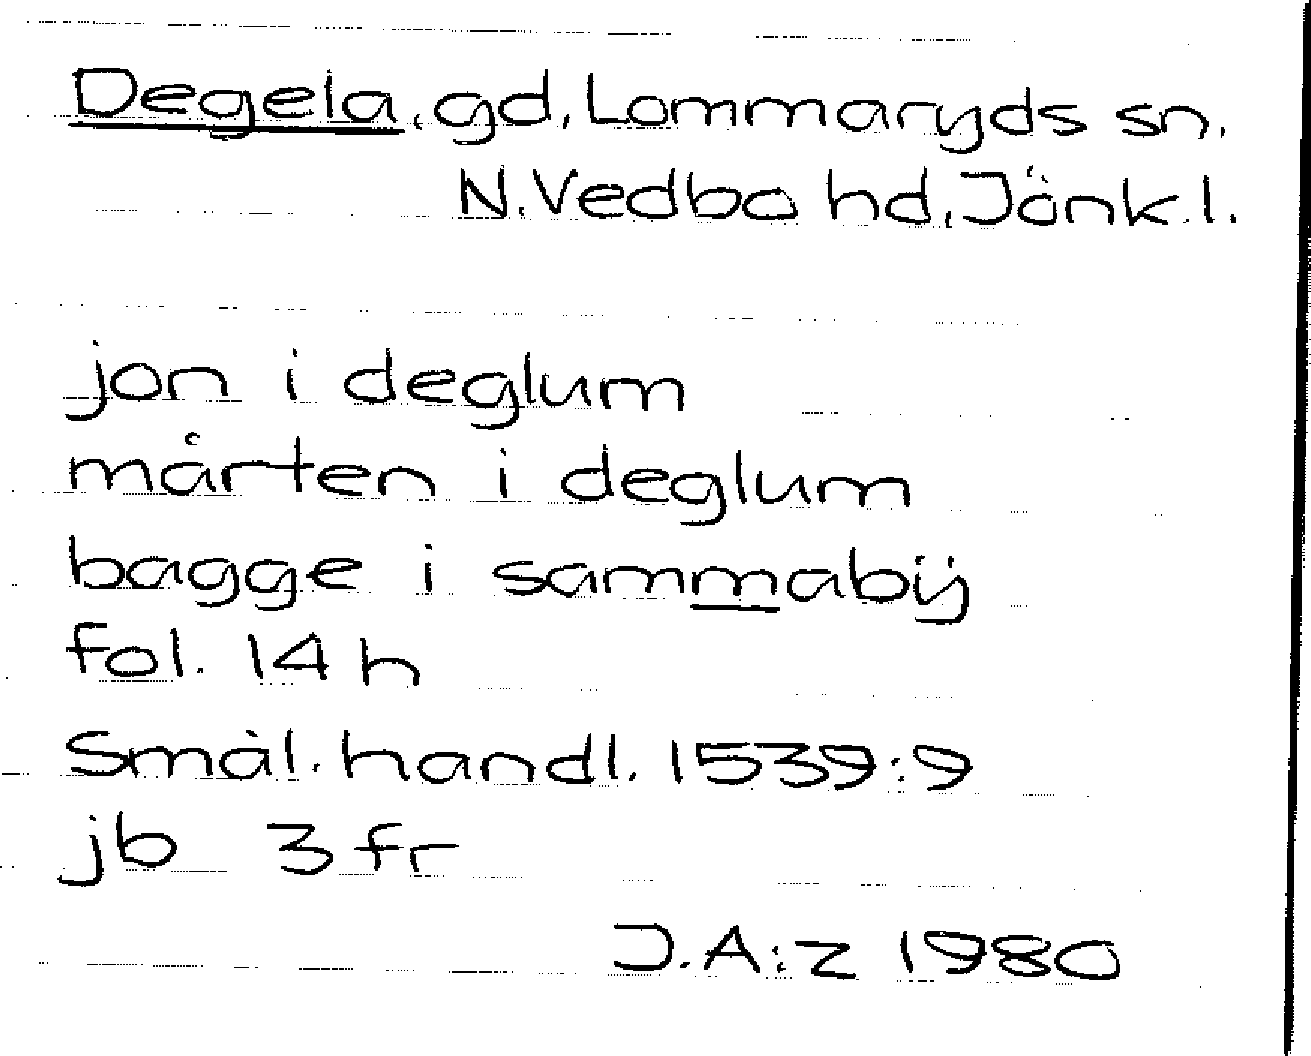 Degela, gd, Lommaryds sn.
N.Vedbo hd, Jönk.l.
jon i deglum
mårten i deglum
bagge i sammabÿ
fol. 14 h
Smål. handl. 1539:9
jb 3 fr
J.A:z 1980